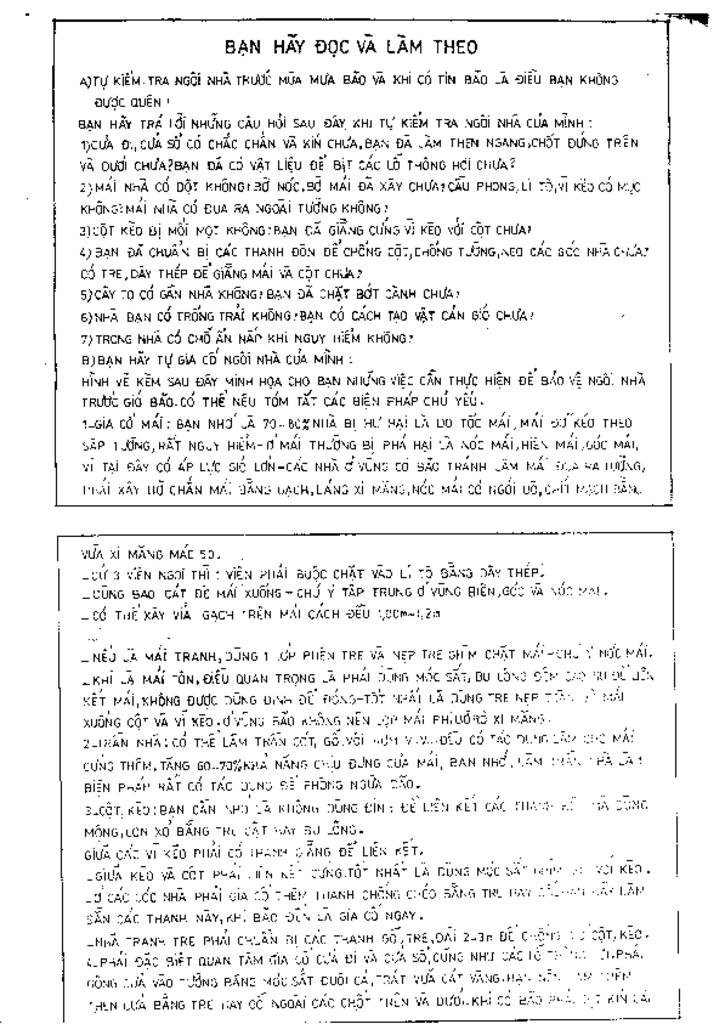 BẠN HÃY ĐỌC VÀ LÀM THEO
A)TỰ KIỂM TRA NGÔI NHÀ TRƯỚC MÙA MƯA BÃO VÀ KHI CÓ TIN BÃO LÀ ĐIỀU BẠN KHÔNG
ĐƯỢC QUÊN !
BẠN HÃY TRẢ LỜI NHỮNG CÂU HỎI SAU ĐÂY KHI TỰ KIỂM TRA NGÔI NHÀ CỦA MÌNH :
1)CỬA ĐI,CỬA SỔ CÓ CHẮC CHẮN VÀ KÍN CHƯA,BẠN ĐÃ LÀM THEN NGANG,CHỐT ĐỨNG TRÊN
VÀ DƯỚI CHƯA?BẠN ĐÃ CÓ VẬT LIỆU ĐỂ BỊT CÁC LỖ THÔNG HƠI CHƯA?
2)MÁI NHÀ CÓ DỘT KHÔNG?BỜ NÓC,BỜ MÁI ĐÃ XÂY CHƯA?CẦU PHONG,LI TÔ,VÌ KÈO CÓ MỤC
KHÔNG?MÁI NHÀ CÓ ĐUA RA NGOÀI TƯỜNG KHÔNG?
3)CỘT KÈO BỊ MỐI MỌT KHÔNG?BẠN ĐÃ GIẰNG CỨNG VÌ KÈO VỚI CỘT CHƯA?
4)BẠN ĐÃ CHUẨN BỊ CÁC THANH ĐÒN ĐỂ CHỐNG CỘT,CHỐNG TƯỜNG,NEO CÁC GÓC NHÀ CHƯA?
CÓ TRE,DÂY THÉP ĐỂ GIẰNG MÁI VÀ CỘT CHƯA?
5)CÂY TO CÓ GẦN NHÀ KHÔNG?BẠN ĐÃ CHẶT BỚT CÀNH CHƯA?
6)NHÀ BẠN CÓ TRỐNG TRẢI KHÔNG?BẠN CÓ CÁCH TẠO VẬT CẢN GIÓ CHƯA?
7)TRONG NHÀ CÓ CHỖ ẨN NẤP KHI NGUY HIỂM KHÔNG?
B)BẠN HÃY TỰ GIA CỐ NGÔI NHÀ CỦA MÌNH :
HÌNH VẼ KÈM SAU ĐÂY MINH HỌA CHO BẠN NHỮNG VIỆC CẦN THỰC HIỆN ĐỂ BẢO VỆ NGÔI NHÀ
TRƯỚC GIÓ BÃO.CÓ THỂ NÊU TÓM TẮT CÁC BIỆN PHÁP CHỦ YẾU.
1-GIA CỐ MÁI: BẠN NHỚ LÀ 70-80%NHÀ BỊ HƯ HẠI LÀ DO TỐC MÁI,MÁI ĐỔ KÉO THEO
SẬP TƯỜNG,RẤT NGUY HIỂM-Ở MÁI THƯỜNG BỊ PHÁ HẠI LÀ NÓC MÁI,HIÊN MÁI,GÓC MÁI,
VÌ TẠI ĐÂY CÓ ÁP LỰC GIÓ LỚN-CÁC NHÀ Ở VÙNG CÓ BÃO TRÁNH LÀM MÁI ĐUA RA TƯỜNG,
PHẢI XÂY BỜ CHẮN MÁI BẰNG GẠCH,LÁNG XI MĂNG,NÓC MÁI CÓ NGÓI BÒ,CHÍT MẠCH BẰNG
VỮA XI MĂNG MÁC 50.
-CỨ 3 VIÊN NGÓI THÌ 1 VIÊN PHẢI BUỘC CHẶT VÀO LI TÔ BẰNG DÂY THÉP.
-DÙNG BAO CÁT ĐÈ MÁI XUỐNG-CHÚ Ý TẬP TRUNG Ở VÙNG BIÊN,GÓC VÀ NÓC MÁI.
-CÓ THỂ XÂY VỈA GẠCH TRÊN MÁI CÁCH ĐỀU 1,00m-1,2m
-NẾU LÀ MÁI TRANH,DÙNG 1 LỚP PHÊN TRE VÀ NẸP TRE GHÌM CHẶT MÁI-CHÚ Ý NÓC MÁI.
-KHI LÀ MÁI TÔN,ĐIỀU QUAN TRỌNG LÀ PHẢI DÙNG MÓC SẮT,BU LÔNG ĐỆM CAO SU ĐỂ LIÊN
KẾT MÁI,KHÔNG ĐƯỢC DÙNG ĐINH ĐỂ ĐÓNG-TỐT NHẤT LÀ DÙNG TRE NẸP MÁI
XUỐNG CỘT VÀ VÌ KÈO.Ở VÙNG BÃO KHÔNG NÊN LỢP MÁI PHIBRÔ XI MĂNG.
2-TRẦN NHÀ:CÓ THỂ LÀM TRẦN CÓT,GỖ,VÔI V.V...ĐỀU CÓ TÁC DỤNG LÀM CHO MÁI
CỨNG THÊM,TĂNG 60-70%KHẢ NĂNG CHỊU ĐỰNG CỦA MÁI, BẠN NHỚ, LÀM TRẦN NHÀ LÀ 1
BIỆN PHÁP RẤT CÓ TÁC DỤNG ĐỂ PHÒNG NGỪA BÃO.
3-CỘT,KÈO:BẠN CẦN NHỚ LÀ KHÔNG DÙNG ĐINH ĐỂ LIÊN KẾT CÁC THANH MÀ DÙNG
MỘNG,CON XỎ BẰNG TRE CẬT HAY BU LÔNG.
GIỮA CÁC VÌ KÈO PHẢI CÓ THANH GIẰNG ĐỂ LIÊN KẾT.
-GIỮA KÈO VÀ CỘT PHẢI LIÊN KẾT CỨNG.TỐT NHẤT LÀ DÙNG MÓC SẮT VỚI KÈO.
-Ở CÁC GÓC NHÀ PHẢI GIA CỐ THÊM THANH CHỐNG CHÉO BẰNG TRE HAY LÀM
SẴN CÁC THANH NÀY,KHI BÃO ĐẾN LÀ GIA CỐ NGAY.
-NHÀ TRANH TRE PHẢI CHUẨN BỊ CÁC THANH GỖ,TRE,DÀI 2-3m ĐỂ CHỐNG CỘT,KÈO.
4-PHẢI ĐẶC BIỆT QUAN TÂM GIA CỐ CỬA ĐI VÀ CỬA SỔ,CŨNG NHƯ CÁC LỖ THÔNG HƠI.PHẢI
CỬA VÀO TƯỜNG BẰNG MÓC SẮT ĐUÔI CÁ,TRÁT VỮA BẠN NÊN LÀM THÊM
THEN CỬA BẰNG TRE HAY GỖ NGOÀI CÁC CHỐT TRÊN VÀ DƯỚI.KHI CÓ BÃO PHẢI BỊT KÍN CÁC